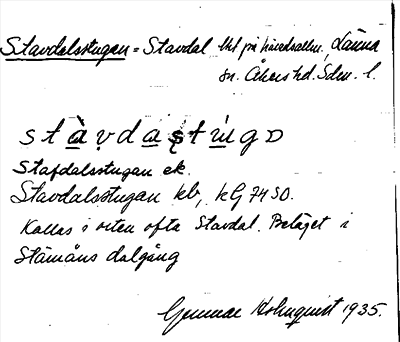 Stavdalsstugan = Stavdal tht på häradsallm., Länna
sn. Åkers hd. Sdm. l.
stàvdastùgɒ
Stafdalsstugan ek.
Stavdalsstugan kb, kG 74 SO.
Kallas i orten ofta Stavdal. Beläget i
Stämåns dalgång
Gunnar Holmquist 1935.